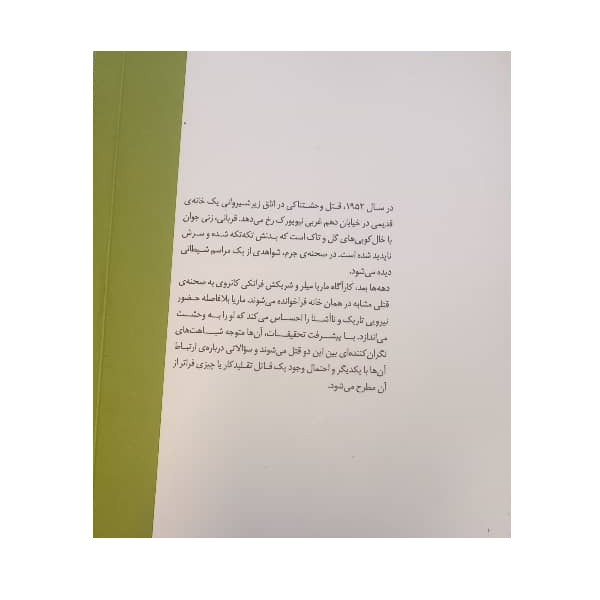 در سال ۱۹۵۲، قتل وحشتناکی در اتاق زیرشیروانی یک خانه‌ی
قدیمی در خیابان دهم غربی نیویورک رخ می‌دهد. قربانی، زنی جوان
با خال‌کوبی‌های گل و تاک است که بدنش تکه‌تکه شده و سرش
ناپدید شده است. در صحنه‌ی جرم، شواهدی از یک مراسم شیطانی
دیده می‌شود.
دهه‌ها بعد، کارآگاه ماریا میلر و شریکش فرانکی کانروی به صحنه‌ی
قتلی مشابه در همان خانه فراخوانده می‌شوند. ماریا بلافاصله حضور
نیرویی تاریک و ناآشنا را احساس می‌کند که او را به وحشت
می‌اندازد. با پیشرفت تحقیقات، آن‌ها متوجه شباهت‌های
نگران‌کننده‌ای بین این دو قتل می‌شوند و سؤالاتی درباره‌ی ارتباط
آن‌ها با یکدیگر و احتمال وجود یک قاتل تقلیدکار یا چیزی فراتر از
آن مطرح می‌شود.